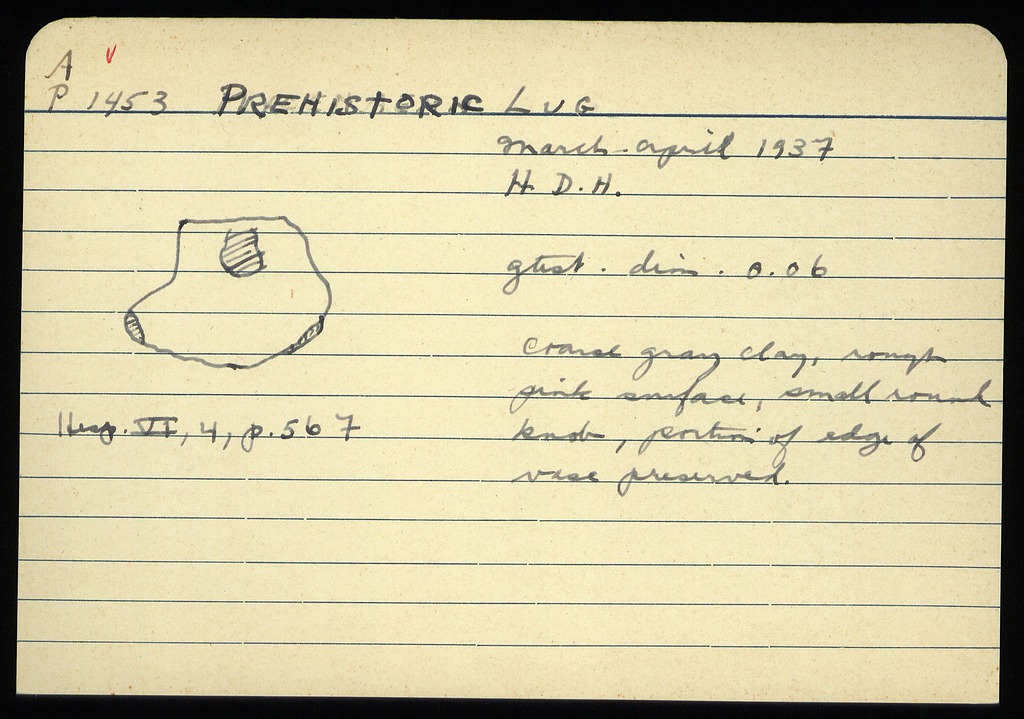 A
P 1453 PREHISTORIC LUG
March-April 1937
H. D. H.
gtest. dim. 0.06
coarse gray clay, rough
pink surface, small round
knob, portion of edge of
vase preserved.
Hesp. VI, 4, p. 567